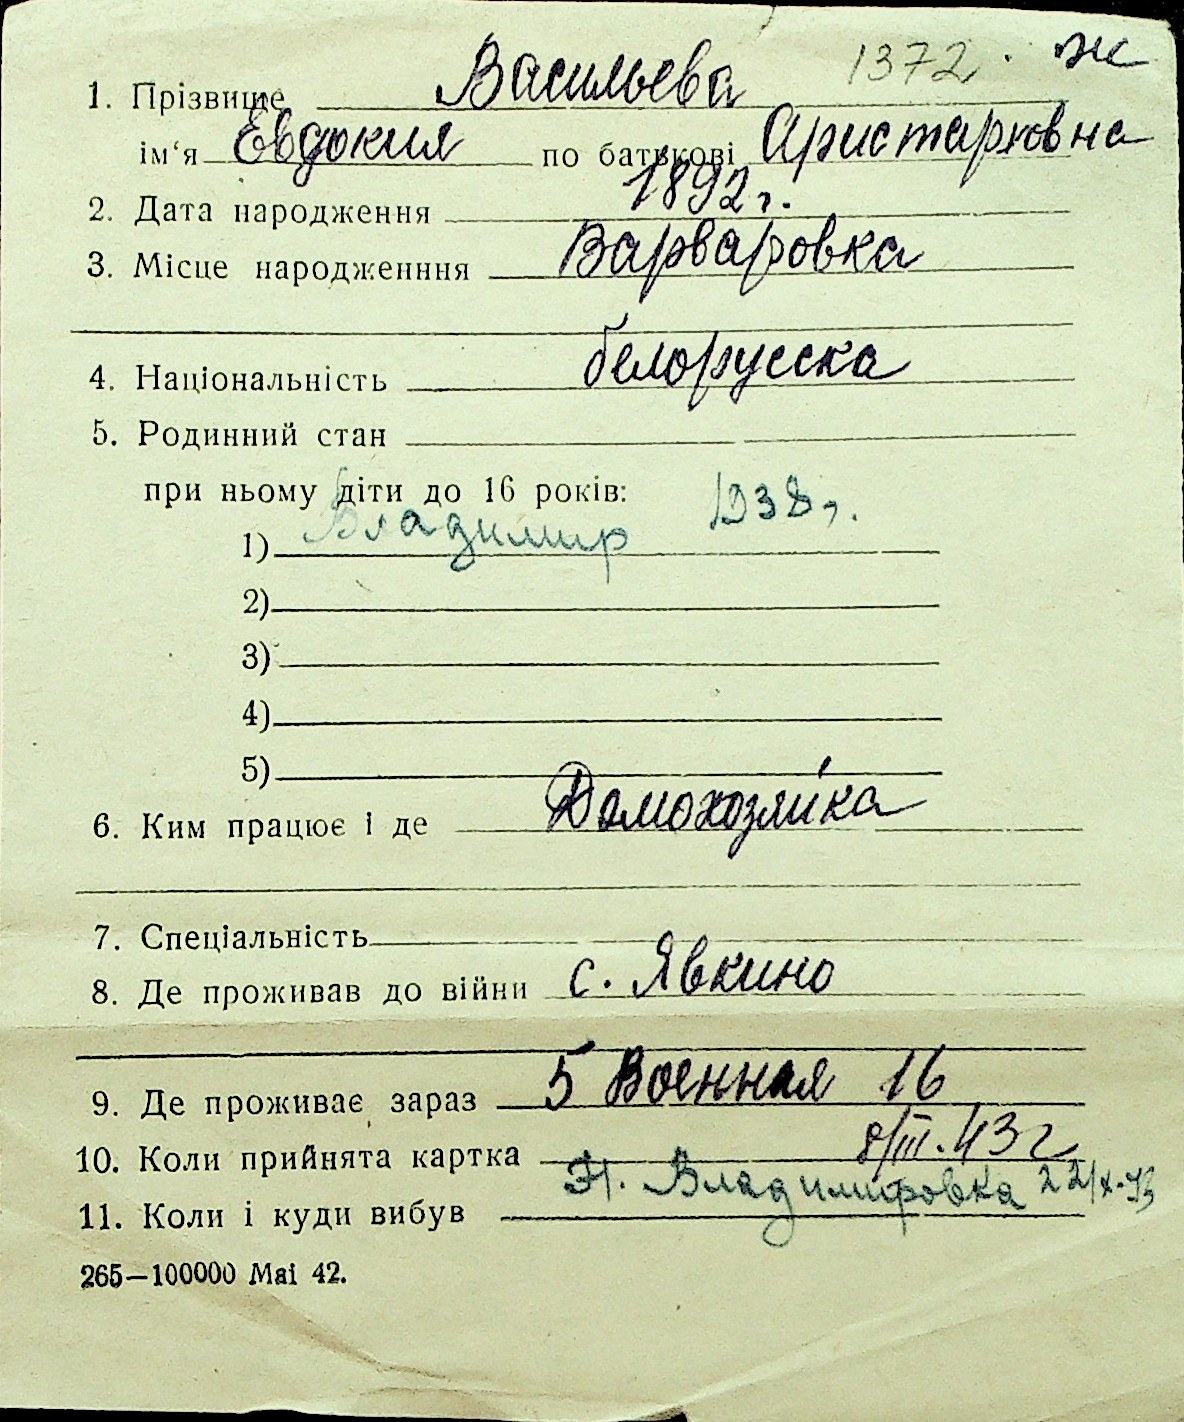 1372. ж
1. Прізвище Васильева
ім‘я Евдокия по батькові Аристарховна
2. Дата народження 1892 г.
3. Місце народженння Варваровка
4. Національність белорусска
5. Родинний стан
при ньому діти до 16 років:
1) Владимир 1938 г.
2)
3)
4)
5)
6. Ким працює і де Домохозяйка
7. Спеціальність
8. Де проживав до війни с. Явкино
9. Де проживає зараз 5 Военная 16
10. Коли прийнята картка 8/III.43 г
11. Коли і куди вибув Н. Владимировка 22/X-43
265—100000 Mai 42.